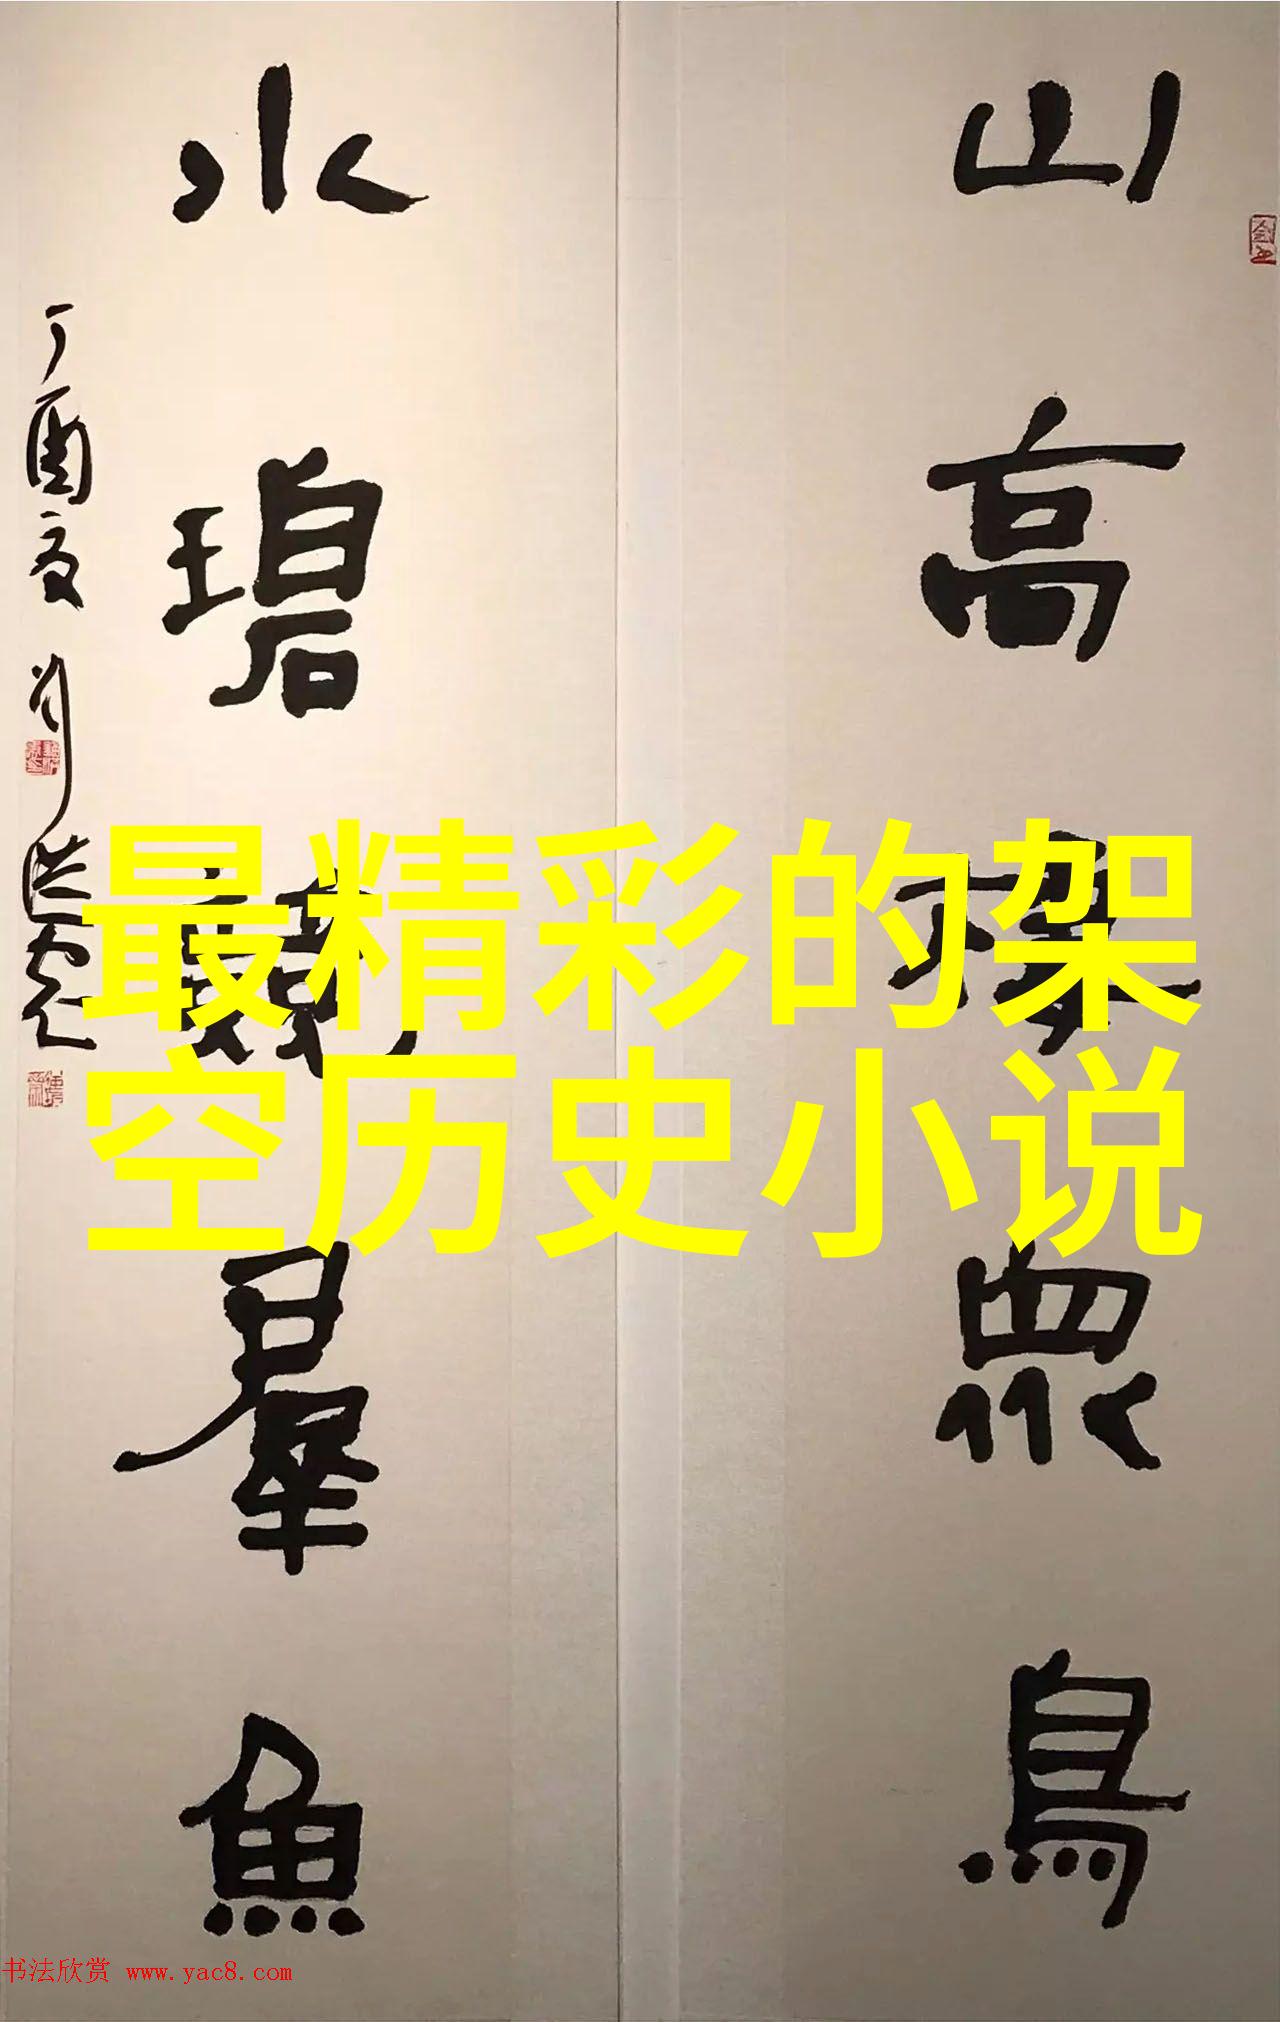 山高㩲眾鳥
水碧戲羣魚
丁酉夏
最精彩的架
空历史小说
书法欣赏 www.yac8.com